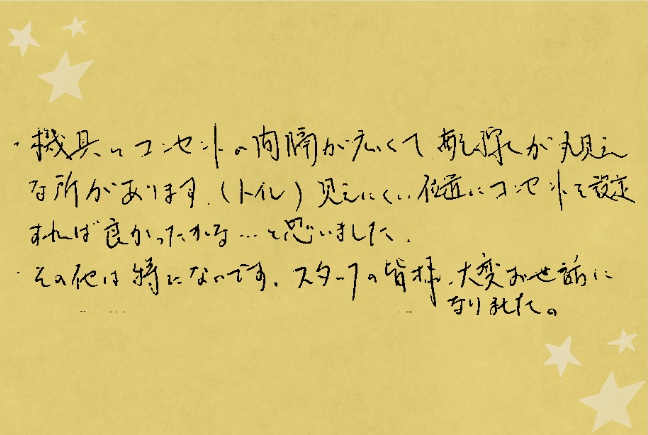 ・機具とコンセントの間隔が広くて配線が丸見え
な所があります。(トイレ) 見えにくい位置にコンセントを設定
すれば良かったかな…と思いました。
・その他は特にないです。スタッフの皆様、大変お世話に
なりました。